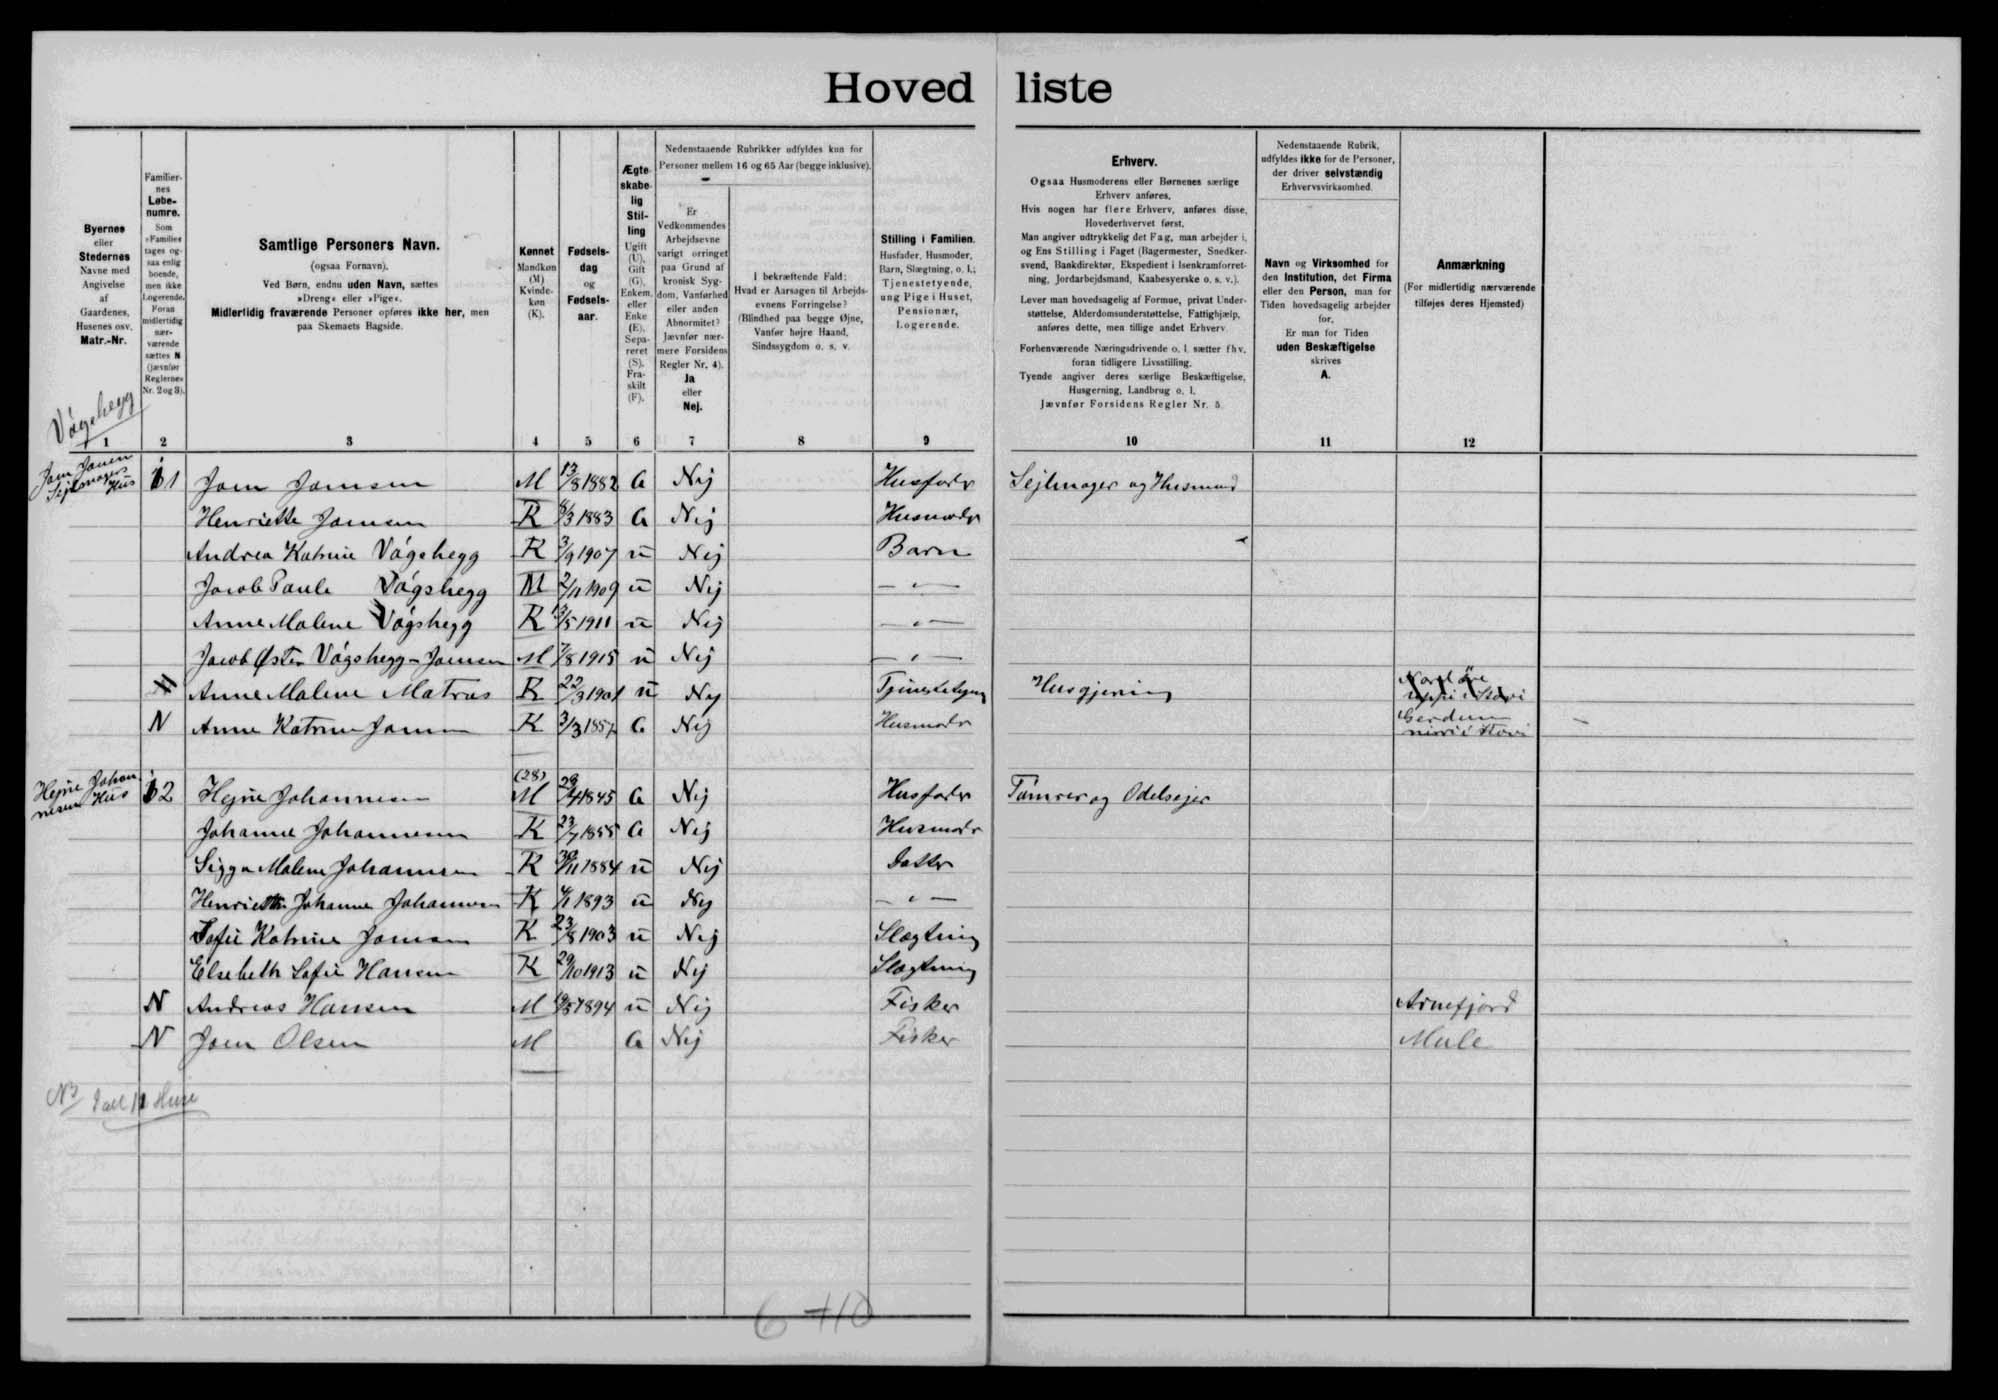 Hovedliste
Byernes
eller
Stedernes
Navne med
Angivelse
af
Gaardenes,
Husenes osv.
Matr.-Nr.
Familier-
nes
Løbe-
numre.
Som
»Familie«
tages og-
saa enlig
boende,
men ikke
Logerende.
Foran
midlertidig
nær-
værende
sættes N
(jævnfør
Reglernes
Nr. 2 og 3).
Samtlige Personers Navn.
(ogsaa Fornavn).
Ved Børn, endnu uden Navn, sættes
»Dreng« eller »Pige«.
Midlertidig fraværende Personer opføres ikke her, men
paa Skemaets Bagside.
Kønnet
Mandkøn
(M)
Kvinde-
køn
(K).
Fødsels-
dag
og
Fødsels-
aar.
Ægte-
skabe-
lig
Stil-
ling
Ugift
(U),
Gift
(G),
Enkem.
eller
Enke
(E),
Sepa-
reret
(S),
Fra-
skilt
(F).
Nedenstaaende Rubrikker udfyldes kun for
Personer mellem 16 og 65 Aar (begge inklusive).
Er
Vedkommendes
Arbejdsevne
varigt forringet
paa Grund af
kronisk Syg-
dom, Vanførhed
eller anden
Abnormitet?
Jævnfør nær-
mere Forsidens
Regler Nr. 4).
Ja
eller
Nej.
I bekræftende Fald:
Hvad er Aarsagen til Arbejds-
evnens Forringelse?
(Blindhed paa begge Øjne,
Vanfør højre Haand,
Sindssygdom o. s. v.
Stilling i Familien.
Husfader, Husmoder,
Barn, Slægtning, o. l.;
Tjenestetyende,
ung Pige i Huset,
Pensionær,
Logerende.
Erhverv.
Ogsaa Husmoderens eller Børnenes særlige
Erhverv anføres.
Hvis nogen har flere Erhverv, anføres disse,
Hovederhvervet først.
Man angiver udtrykkelig det Fag, man arbejder i,
og Ens Stilling i Faget (Bagermester, Snedker-
svend, Bankdirektør, Ekspedient i Isenkramforret-
ning, Jordarbejdsmand, Kaabesyerske o. s. v.).
Lever man hovedsagelig af Formue, privat Under-
støttelse, Alderdomsunderstøttelse, Fattighjælp,
anføres dette, men tillige andet Erhverv
Forhenværende Næringsdrivende o. l. sætter fhv.
foran tidligere Livsstilling.
Tyende angiver deres særlige Beskæftigelse,
Husgerning, Landbrug o. l.
Jævnfør Forsidens Regler Nr. 5.
Nedenstaaende Rubrik,
udfyldes ikke for de Personer,
der driver selvstændig
Erhvervsvirksomhed.
Navn og Virksomhed for
den Institution, det Firma
eller den Person, man for
Tiden hovedsagelig arbejder
for.
Er man for Tiden
uden Beskæftigelse
skrives
A.
Anmærkning
(For midlertidig nærværende
tilføjes deres Hjemsted)
Vágshegg
1 2 3 4 5 6 7 8 9 10 11 12
Joen Joensen
Sejlmagers
Hus
1 Joen Joensen M 13/8 1882 G Nej Husfader Sejlmager og Husmand
Henriette Joensen K 8/3 1883 G Nej Husmoder
Andrea Katrine Vágshegg K 3/9 1907 u Nej Barn
Jacob Paule Vágshegg M 2/11 1909 u Nej — " —
Anne Malene Vágshegg K 13/5 1911 u Nej — " —
Jacob Østen Vágshegg-Joensen M 7/8 1915 u Nej — " —
N Anne Malene Matras K 22/3 1901 u Nej Tjenestetyende Husgjerning
N Anne Katrine Joensen K 3/3 1857 G Nej Husmoder
Hejne Johan-
nesen Hus
2 Hejne Johannesen (28) M 29/4 1845 G Nej Husfader Tømrer og Odelsejer
Johanne Johannesen K 23/7 1855 G Nej Husmoder
Sigga Malene Johannesen K 30/11 1884 u Nej Datter
Henriette Johanne Johannesen K 4/1 1893 u Nej — " —
Sofie Katrine Joensen K 23/8 1903 u Nej Slægtning
Elsebeth Sofie Hansen K 29/10 1913 u Nej Slægtning
N Andreas Hansen M 19/5 1894 u Nej Fisker Arnefjord
N Joen Olsen M G Nej Fisker Mule
NB I alt Huse
6 + 10